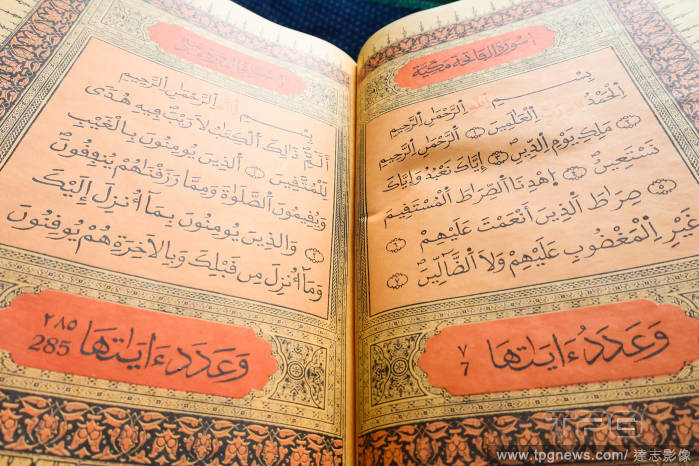 سُورَةُ الْفَاتِحَةِ مَكِّيَّة
بِسْمِ اللهِ الرَّحْمٰنِ الرَّحِيمِ
الْحَمْدُ لِلهِ رَبِّ الْعَالَمِينَ ١ الرَّحْمٰنِ الرَّحِيمِ
٢ مَلِكِ يَوْمِ الدِّينِ ٣ إِيَّاكَ نَعْبُدُ وَإِيَّاكَ
نَسْتَعِينُ ٤ اِهْدِنَا الصِّرَاطَ الْمُسْتَقِيمَ
٥ صِرَاطَ الَّذِينَ أَنْعَمْتَ عَلَيْهِمْ ٦
غَيْرِ الْمَغْضُوبِ عَلَيْهِمْ وَلَا الضَّالِّينَ ٧
وَعَدَدُ ءَايَاتِهَا ٧
7
بِسْمِ اللهِ الرَّحْمٰنِ الرَّحِيمِ
الٓمٓ ذَالِكَ الْكِتَابُ لَا رَيْبَ فِيهِ هُدًى
لِلْمُتَّقِينَ ١ الَّذِينَ يُومِنُونَ بِالْغَيْبِ
وَيُقِيمُونَ الصَّلَوٰةَ وَمِمَّا رَزَقْنَاهُمْ يُنفِقُونَ
٢ وَالَّذِينَ يُومِنُونَ بِمَا أُنزِلَ إِلَيْكَ
وَمَا أُنزِلَ مِن قَبْلِكَ وَبِالَاخِرَةِ هُمْ يُوقِنُونَ
وَعَدَدُ ءَايَاتِهَا ٢٨٥
285
www.tpgnews.com/ 達志影像